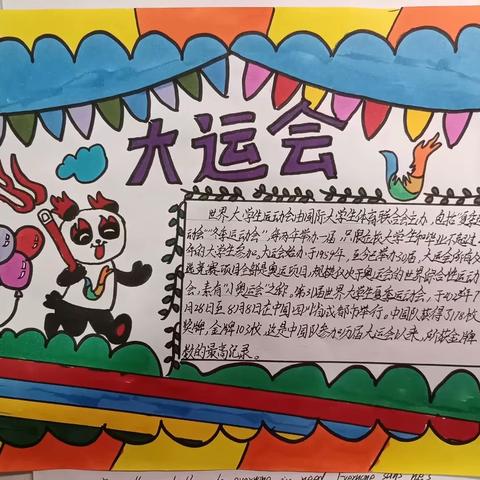 大运会
世界大学生运动会由国际大学生体育联合会主办,包括"夏季运
动会""冬季运动会"。每两年举办一届,只限在校大学生和毕业不超过
年的大学生参加。大运会始办于1959年,
竞赛项目全部是奥运项目,规模仅次于奥运会的世界综合性运动
会,素有"小奥运会"之称。第31届世界大学生夏季运动会,于2023年7
月28日至8月8日在中国四川省成都市举行。中国队获得了178枚
奖牌,金牌103枚,这是中国队参加历届大运会以来,所获金牌
数的最高记录。